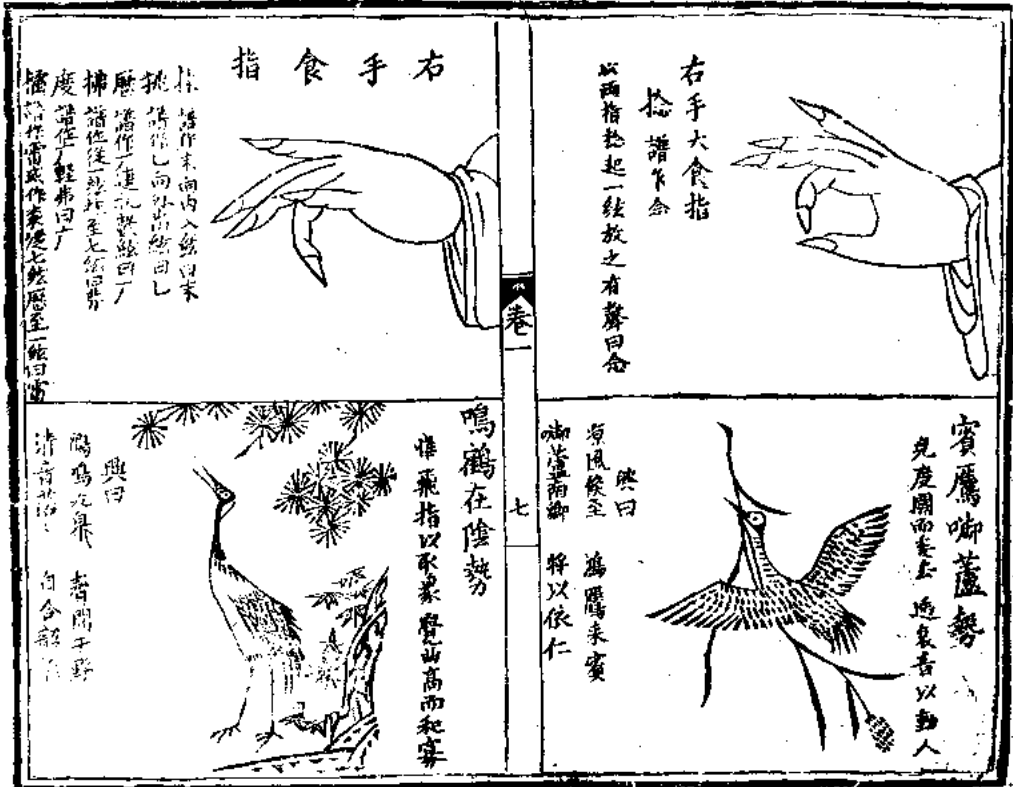 右手大食指
捻 譜作念
以兩指捻起一絃放之有聲曰念
賓鴈啣蘆勢
免度關而委去 遞哀音以動人
興曰
凉風候至 鴻鴈來賓
啣蘆南鄉 將以依仁
卷一
七
右手食指
抹 譜作木向内入絃曰木
挑 譜作乚向外出絃曰乚
歷 譜作厂連挑數絃曰厂
拂 譜作從一絃至七絃曰
度 譜作广輕弗曰广
擂 譜作雷或作從七絃歷至一絃曰雷
鳴鶴在陰勢
惟飛指以取象 覺曲高而和寡
興曰
鶴鳴九臯 聲聞于野
清音 自合韶